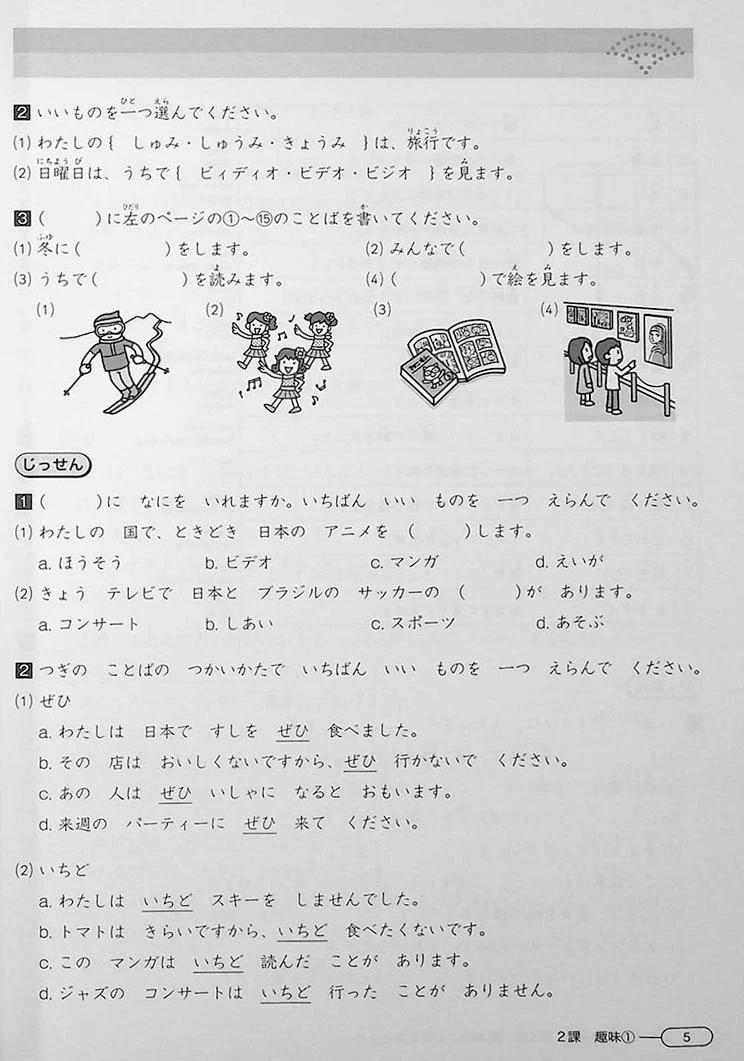 2 いいものを一つ選んでください。
(1) わたしの{ しゅみ・しゅうみ・きょうみ }は、旅行です。
(2) 日曜日は、うちで{ ビィディオ・ビデオ・ビジオ }を見ます。
3 ( )に左のページの①～⑮のことばを書いてください。
(1) 冬に( )をします。 (2) みんなで( )をします。
(3) うちで( )を読みます。 (4) ( )で絵を見ます。
(1) (2) (3) (4)
じっせん
1 ( )に なにを いれますか。いちばん いい ものを 一つ えらんで ください。
(1) わたしの 国で、ときどき 日本の アニメを ( )します。
a. ほうそう b. ビデオ c. マンガ d. えいが
(2) きょう テレビで 日本と ブラジルの サッカーの ( )が あります。
a. コンサート b. しあい c. スポーツ d. あそぶ
2 つぎの ことばの つかいかたで いちばん いい ものを 一つ えらんで ください。
(1) ぜひ
a. わたしは 日本で すしを ぜひ 食べました。
b. その 店は おいしくないですから、ぜひ 行かないで ください。
c. あの 人は ぜひ いしゃに なると おもいます。
d. 来週の パーティーに ぜひ 来て ください。
(2) いちど
a. わたしは いちど スキーを しませんでした。
b. トマトは きらいですから、いちど 食べたくないです。
c. この マンガは いちど 読んだ ことが あります。
d. ジャズの コンサートは いちど 行った ことが ありません。
2課 趣味① 5